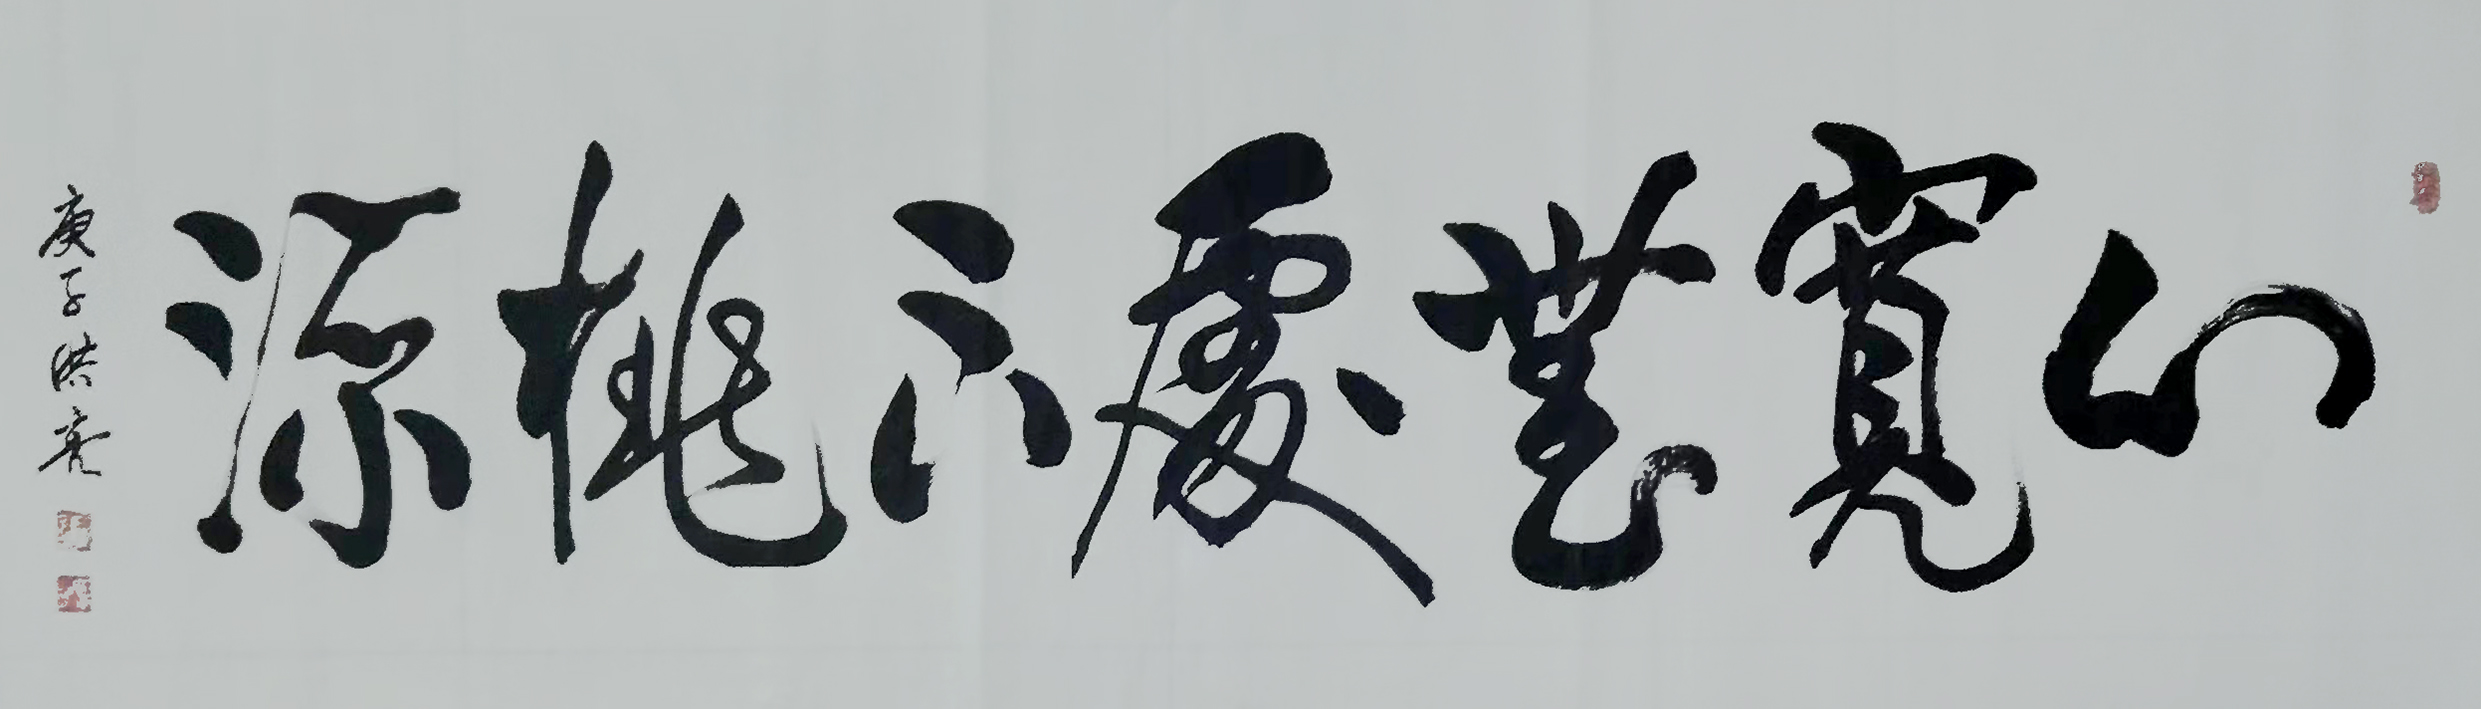 心寬無處不桃源
庚子洪亮